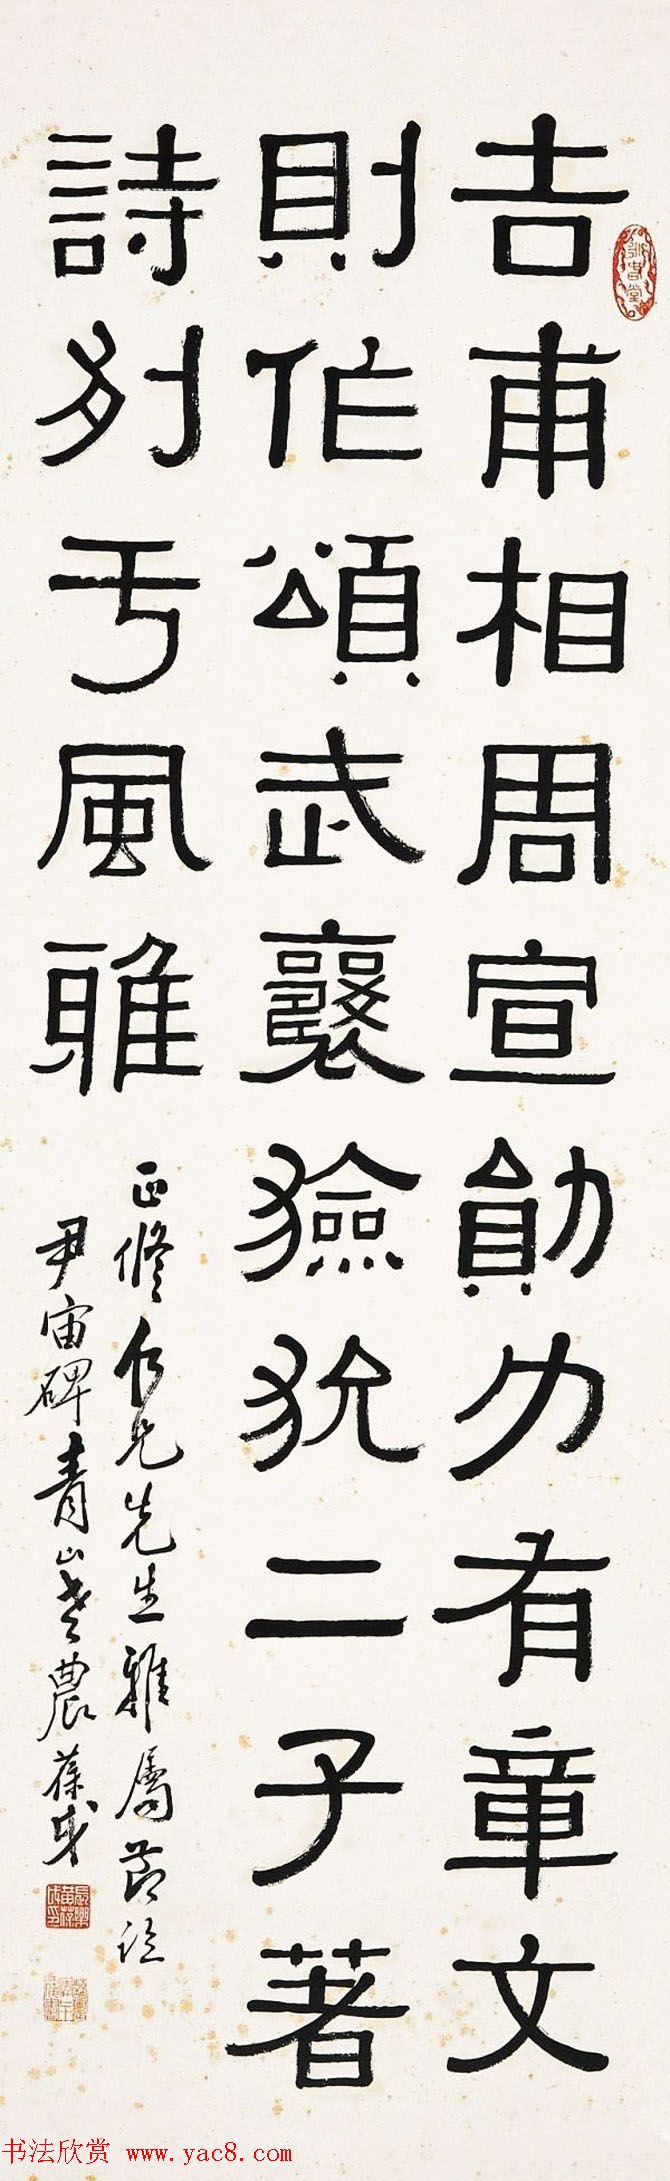 吉甫相周宣勛力有章文
則作頌武襄獫狁二子著
詩列于風雅
正修仁兄先生雅屬節臨
尹宙碑青山老農葆戉
书法欣赏 www.yac8.com